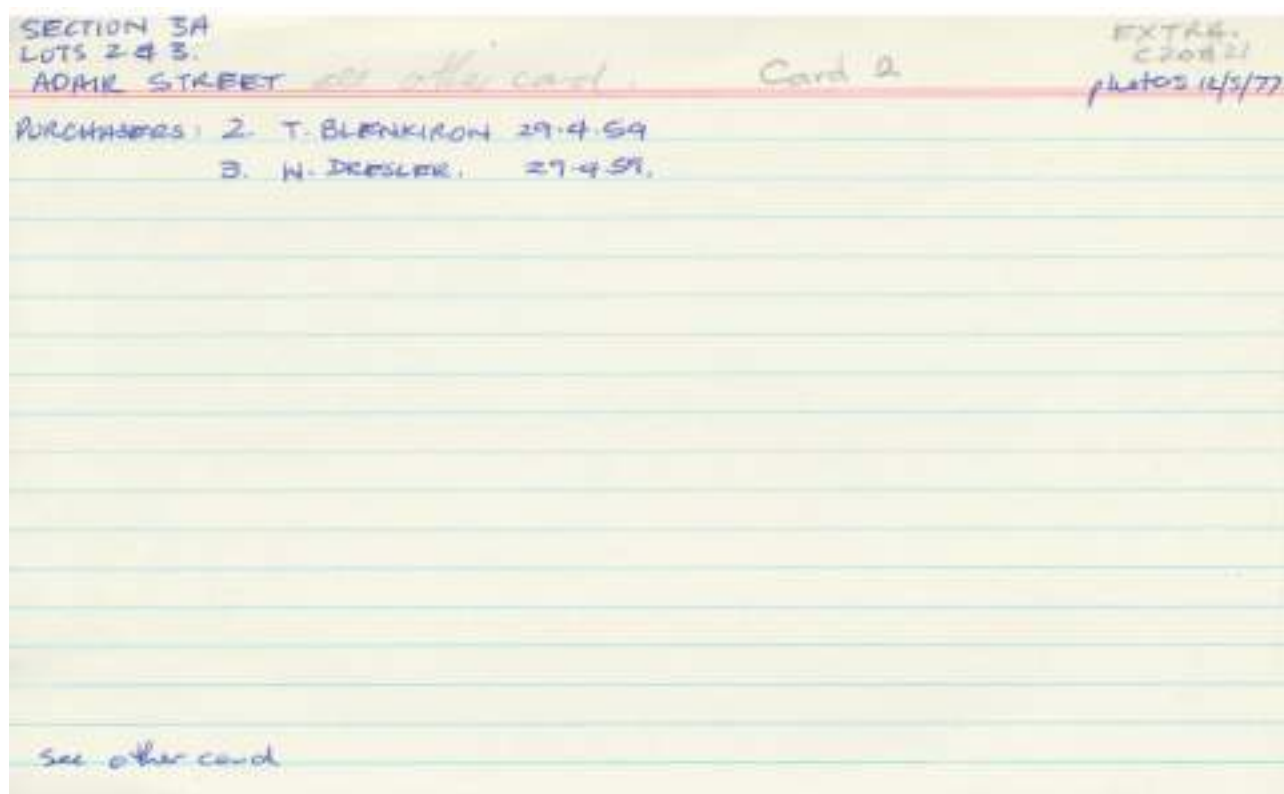 SECTION 3A
LOTS 2 & 3.
ADAIR STREET see other card. Card 2
EXTRA.
photos 12/5/77
PURCHASERS: 2. T. BLENKIRON 29.4.59
3. W. DRESLER. 29.4.59.
see other card